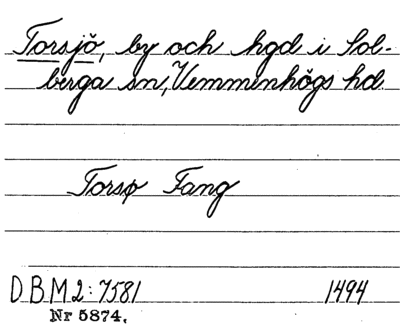 Torsjö, by och hgd i Sol-
berga sn, Vemmenhögs hd.
Torsø Fang
DBM2:7581 1494
Nr 5874.